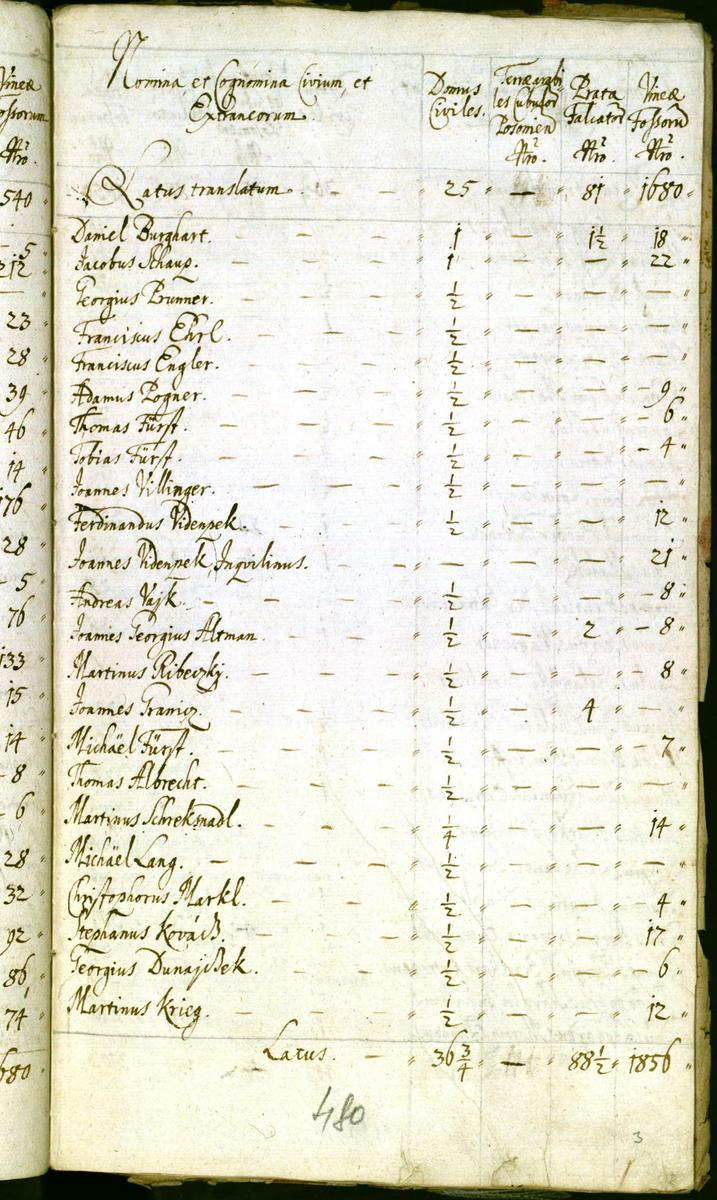 Vineæ
Fossorum
Nro.
540
5
212
23
28
39
46
14
176
28
5
76
133
15
14
8
6
28
32
92
86
74
1680
Nomina et Cognomina Civium, et Extraneorum. Domus Civiles. Terræ arabiles Cubulor Posonien Nro. Prata Falcator Nro. Vineæ Fossorum Nro.
Latus translatum. — — 25 " — " 81 " 1680 "
Daniel Burghart. — — — 1 " — " 1½ " 18 "
Jacobus Schaup. — — — 1 " — " — " 22 "
Georgius Bunner. — — — ½ " — " — " — "
Franciscus Ehrl. — — — ½ " — " — " — "
Franciscus Engler. — — — ½ " — " — " — "
Adamus Pogner. — — — ½ " — " — " 9 "
Thomas Fürst. — — — ½ " — " — " 6 "
Tobias Fürst. — — — ½ " — " — " 4 "
Joannes Villinger. — — — ½ " — " — " — "
Ferdinandus Videnpek. — — — ½ " — " — " 12 "
Joannes Videnpek, Inqvilinus. — — — " — " — " 21 "
Andreas Vajk. — — — ½ " — " — " 8 "
Joannes Georgius Altman. — — — ½ " — " 2 " 8 "
Martinus Ribeczkj. — — — ½ " — " — " 8 "
Joannes Tranicz. — — — ½ " — " 4 " — "
Michäel Fürst. — — — ½ " — " — " 7 "
Thomas Albrecht. — — — ½ " — " — " — "
Martinus Schreknadl. — — — ¼ " — " — " 14 "
Michäel Lang. — — — ½ " — " — " — "
Christophorus Markl. — — — ½ " — " — " 4 "
Stephanus Kovács. — — — ½ " — " — " 17 "
Georgius Dunajcsek. — — — ½ " — " — " 6 "
Martinus Krieg. — — — ½ " — " — " 12 "
Latus. — " 36¾ " — " 88½ " 1856 "
480
3